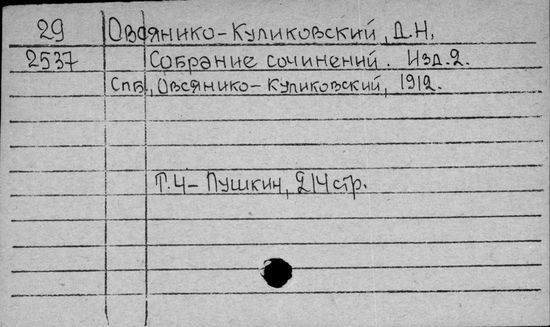 29 Овсянико-Куликовский, Д.Н.
2537 Собрание сочинений. Изд.2.
Спб, Овсянико-Куликовский, 1912.
Т.4- Пушкин, 214 стр.